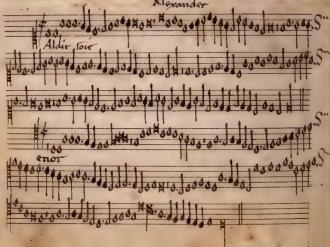 Alexander
Aldir soit
enor